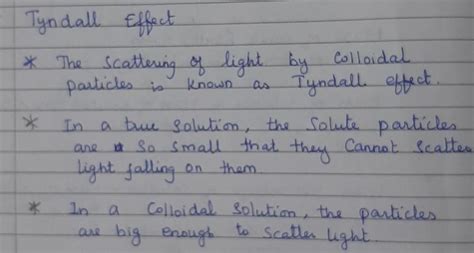 Tyndall Effect
* The scattering of light by Colloidal
particles is known as Tyndall effect.
* In a true solution, the Solute particles
are so small that they Cannot scatter
light falling on them
* In a Colloidal solution, the particles
are big enough to scatter light.